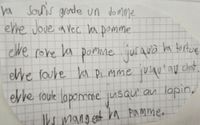 la souris garde un pomme
elle joue avec la pomme
elle roule la pomme jusqu'a la tortue
elle roule la pomme jusqu'au chat.
elle roule la pomme jusqu'au lapin.
Ils mangent la pomme.